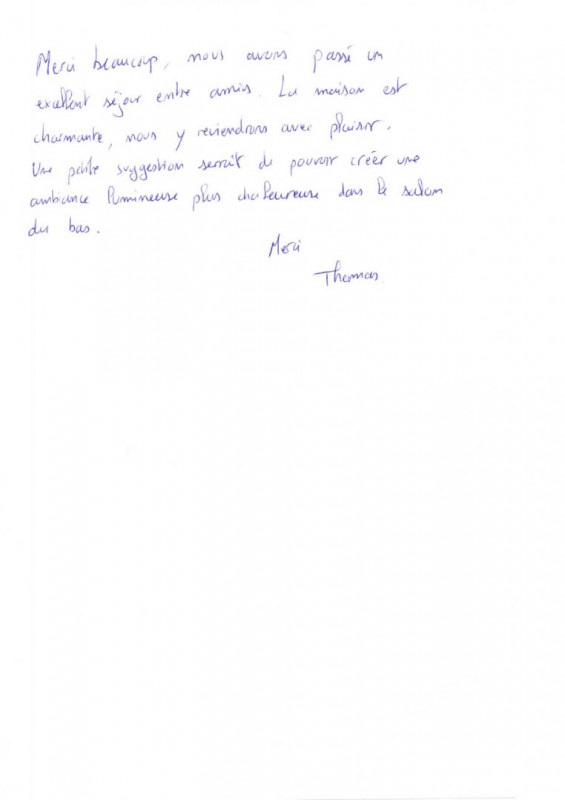 Merci beaucoup, nous avons passé un
excellent séjour entre amis. La maison est
charmante, nous y reviendrons avec plaisir.
Une petite suggestion serait de pouvoir créer une
ambiance lumineuse plus chaleureuse dans le salon
du bas.
Merci
Thomas